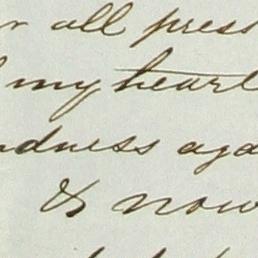 r all press
my heart
ndness aga
& now